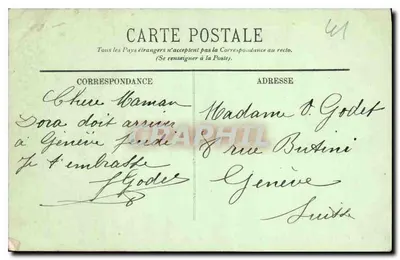 41
CARTE POSTALE
Tous les Pays étrangers n'acceptent pas la Correspondance au recto.
(Se renseigner à la Poste).
CORRESPONDANCE
Chère Maman
Dora doit arriver
a Genève Jeudi
Je t'embrasse
J Godet
ADRESSE
Madame V. Godet
8 rue Butini
Genève
Suisse